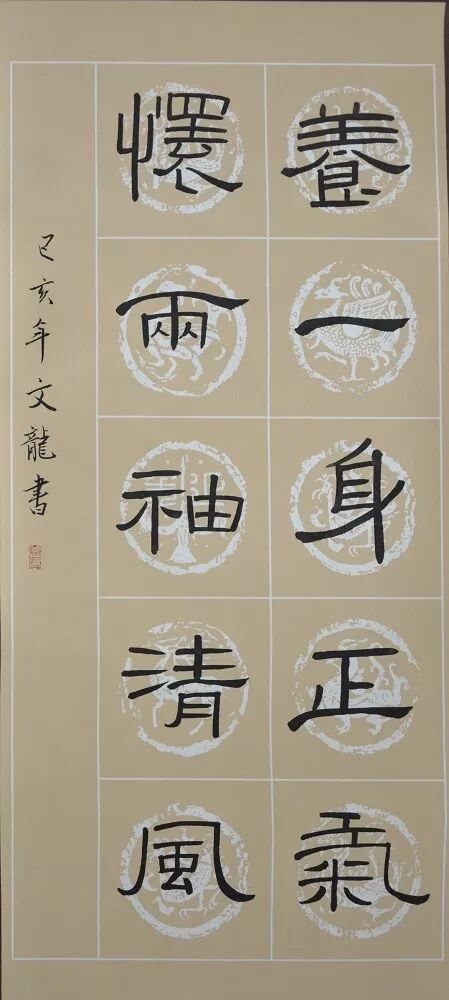 養一身正氣
懷兩袖清風
己亥年文龍書